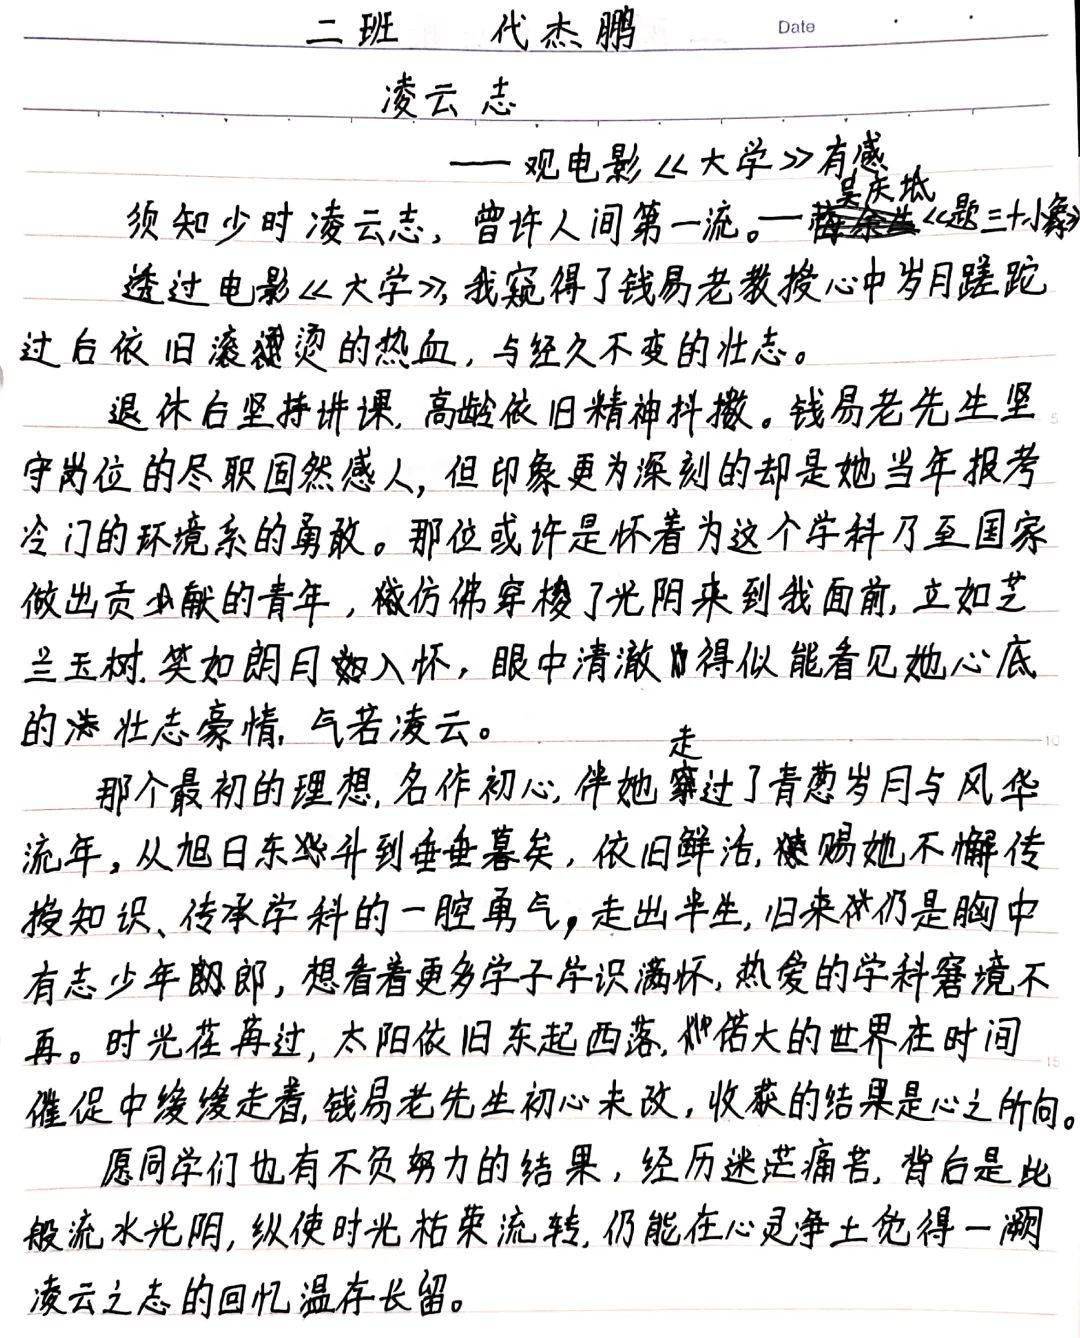 二班 代杰鹏 Date
凌云志
——观电影《大学》有感
须知少时凌云志，曾许人间第一流。——吴庆坻《题三十小象》
透过电影《大学》，我窥得了钱易老教授心中岁月蹉跎
过后依旧滚烫的热血，与经久不变的壮志。
退休后坚持讲课，高龄依旧精神抖擞。钱易老先生坚
守岗位的尽职固然感人，但印象更为深刻的却是她当年报考
冷门的环境系的勇敢。那位或许是怀着为这个学科乃至国家
做出贡献的青年，仿佛穿梭了光阴来到我面前，立如芝
兰玉树，笑如朗月入怀，眼中清澈得似能看见她心底
的壮志豪情，气若凌云。
那个最初的理想，名作初心，伴她走过了青葱岁月与风华
流年。从旭日东升到垂垂暮矣，依旧鲜活，赐她不懈传
授知识、传承学科的一腔勇气。走出半生，归来仍是胸中
有志少年郎，想看着更多学子学识满怀，热爱的学科窘境不
再。时光荏苒过，太阳依旧东起西落，偌大的世界在时间
催促中缓缓走着，钱易老先生初心未改，收获的结果是心之所向。
愿同学们也有不负努力的结果，经历迷茫痛苦，背后是此
般流水光阴，纵使时光枯荣流转，仍能在心灵净土觅得一阙
凌云之志的回忆温存长留。
5
10
15